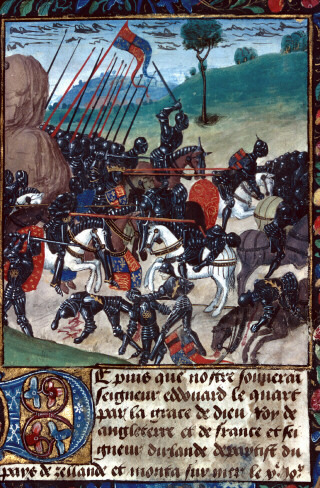 Et puis que nostre souverai
seigneur edouard le quart
par la grace de dieu roy de
angleterre et de france et sei
gneur dirlande departist du
pays de zellande et monta sur mer le